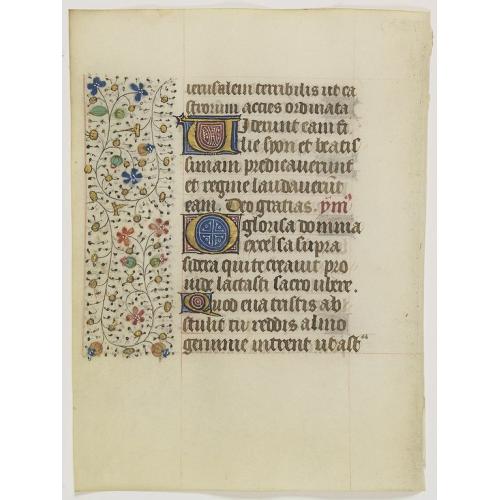 ierusalem terribilis ut ca
strorum acies ordinata
Uiderunt eam fi
lie syon et beatis
simam predicauerunt
et regine laudauerūt
eam. Deo gratias. ymⁿ
O gloriosa domina
excelsa supra
sidera qui te creauit pro
uide lactasti sacro ubere.
Quod eua tristis ab
stulit tu reddis almo
germine intrent ut ast